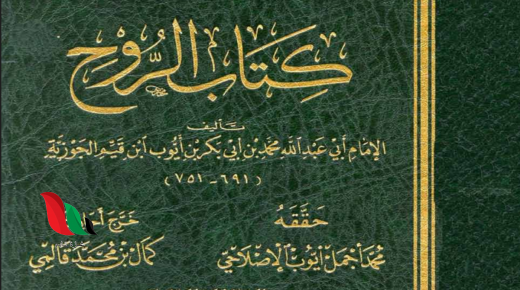 كِتَابُ الرُّوحِ
تَأليف
الإمَامِ أبي عَبدِ اللهِ مُحَمَّدِ بنِ أبي بَكرِ بنِ أيُّوب ابنِ قَيِّمِ الجَوْزِيَّةِ
(٦٩١ - ٧٥١)
حَقَّقَهُ
خَرَّجَ
مُحَمَّد أجْمَل أيُّوب الإصْلَاحِي
كَمَال بن مُحَمَّد قَالِمِي